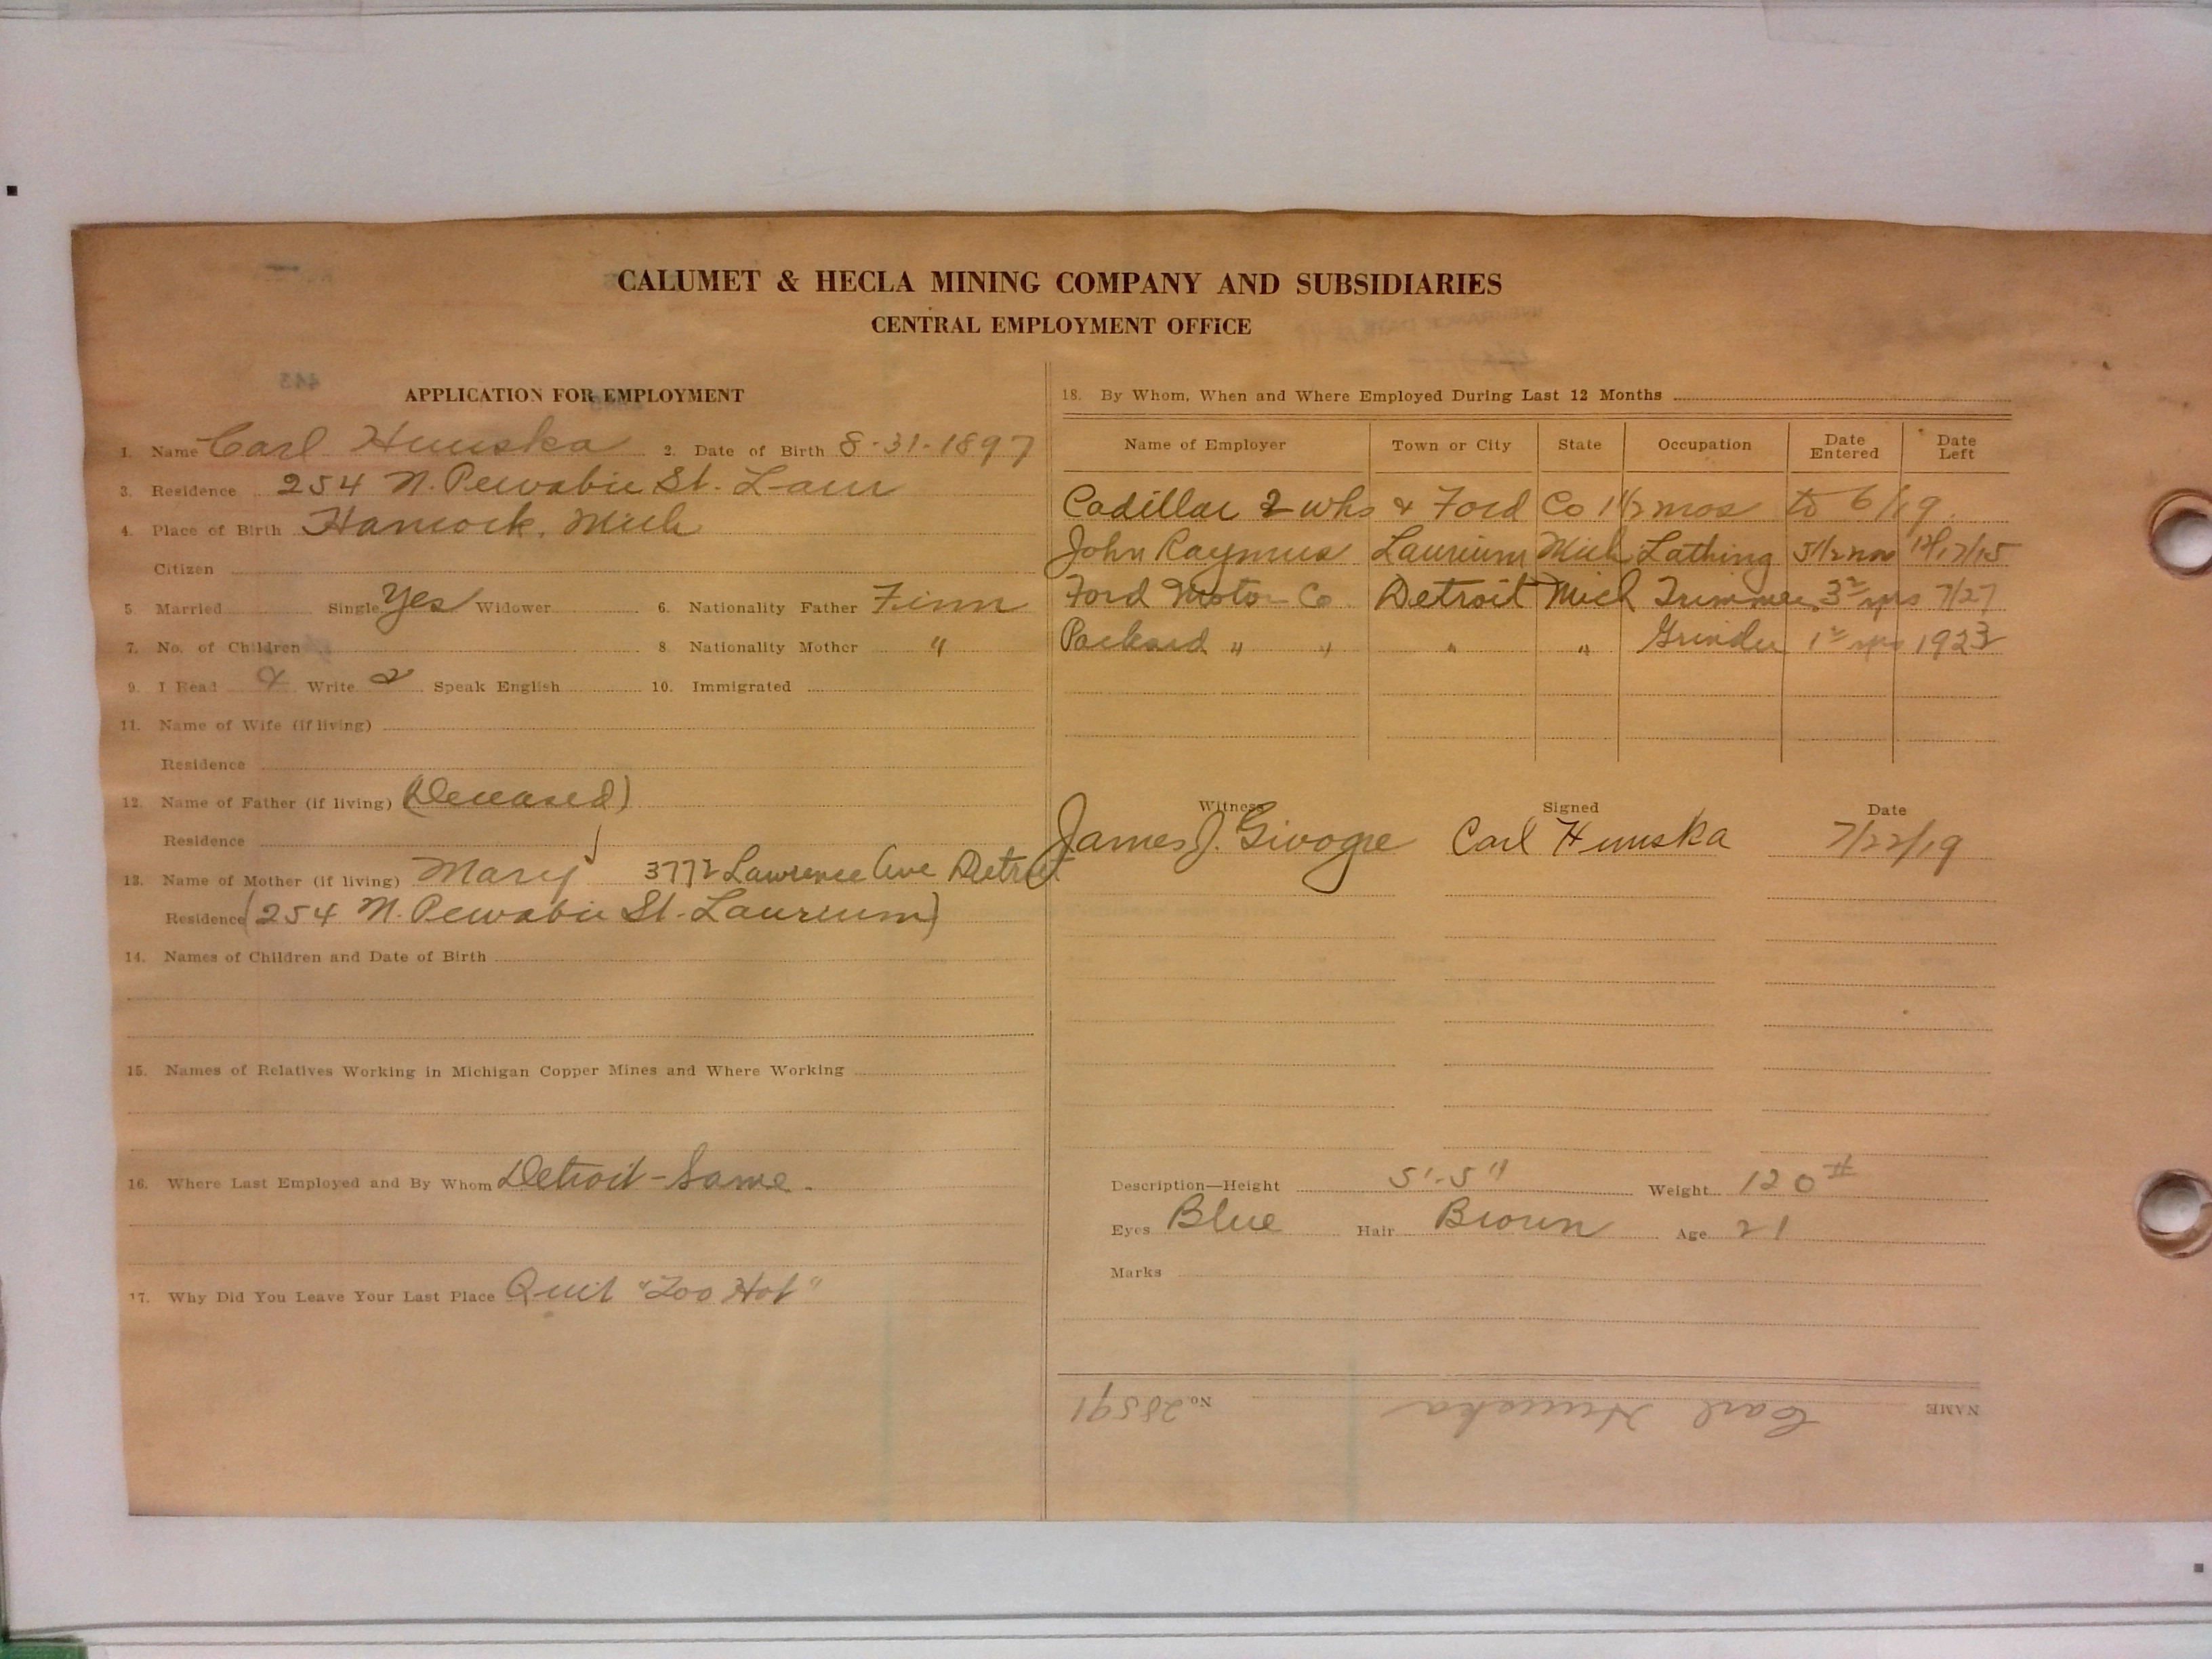 CALUMET & HECLA MINING COMPANY AND SUBSIDIARIES
CENTRAL EMPLOYMENT OFFICE
APPLICATION FOR EMPLOYMENT
1. Name Carl Hunska 2. Date of Birth 8-31-1897
3. Residence 254 N. Pewabic St. Laur
4. Place of Birth Hancock, Mich
Citizen
5. Married Single Yes Widower 6. Nationality Father Finn
7. No. of Children 8. Nationality Mother "
9. I Read Write Speak English 10. Immigrated
11. Name of Wife (if living)
Residence
12. Name of Father (if living) (Deceased)
Residence
13. Name of Mother (if living) Mary 3772 Lawrence Ave Detroit
Residence (254 N. Pewabic St. Laurium)
14. Names of Children and Date of Birth
15. Names of Relatives Working in Michigan Copper Mines and Where Working
16. Where Last Employed and By Whom Detroit - Same.
17. Why Did You Leave Your Last Place Quit "Too Hot"
18. By Whom, When and Where Employed During Last 12 Months
Name of Employer Town or City State Occupation Date Entered Date Left
Cadillac 2 whs & Ford Co 1 1/2 mos to 6/19.
John Raymus Laurium Mich Lathing 5 1/2 mos
Ford Motor Co. Detroit Mich Trimmer 3 yrs 7/27
Packard " " " " Grinder 1 yrs 1923
Witness Signed Date
James J. Carl Hunska 7/22/19
Description—Height 5'-5" Weight 120#
Eyes Blue Hair Brown Age 21
Marks
NAME Carl Hunska No. 28591